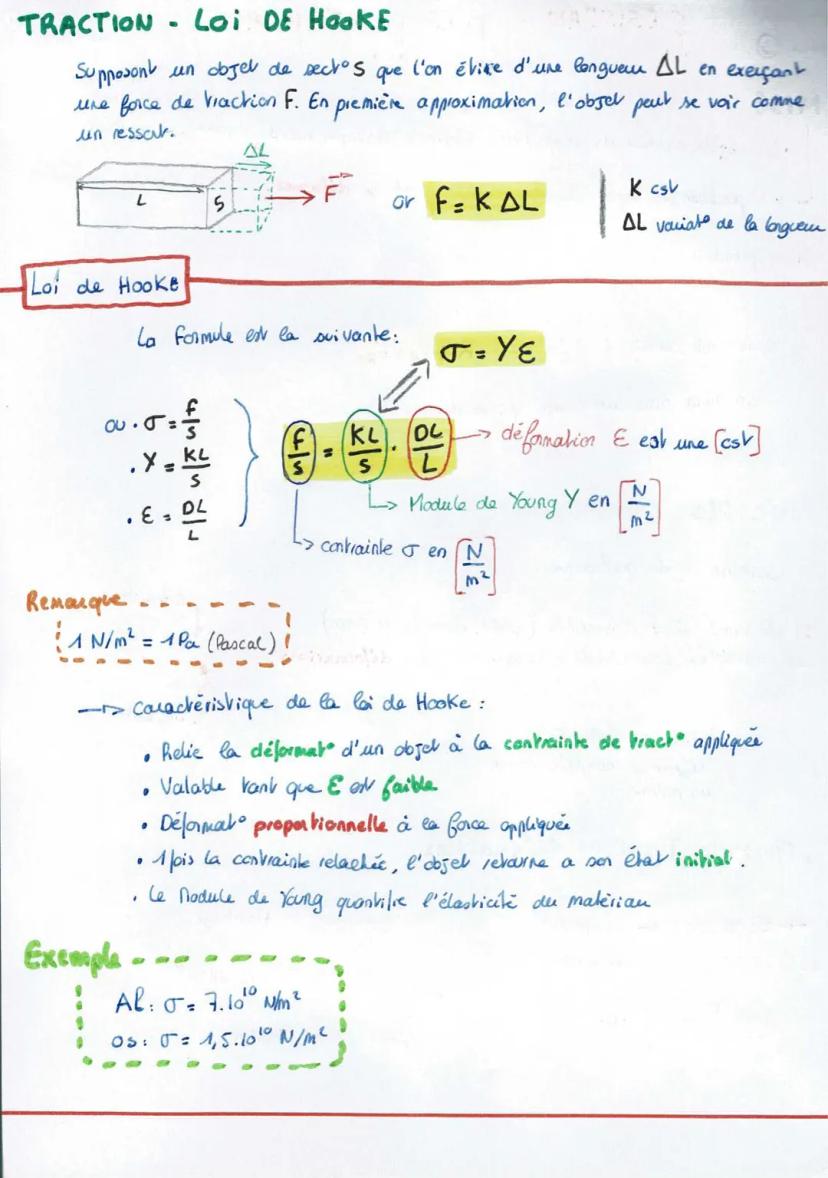 TRACTION - Loi DE HOOKE
Supposont un objet de sect° S que l'on étire d'une longueur ΔL en exerçant
une force de traction F. En première approximation, l'objet peut se voir comme
un ressort.
ΔL
L
S
F
or F = K ΔL
K cst
ΔL variat° de la longueur
Loi de Hooke
La formule est la suivante:
σ = Yε
ou . σ = f/s
. Y = KL/S
. ε = DL/L
f/s = KL/s . DL/L
déformation ε est une [cst]
Module de Young Y en [N/m²]
contrainte σ en [N/m²]
Remarque
1 N/m² = 1 Pa (Pascal)
caractéristique de la loi de Hooke :
• Relie la déformat° d'un objet à la contrainte de tract° appliquée
• Valable tant que ε est faible
• Déformat° proportionnelle à la force appliquée
• 1 fois la contrainte relachée, l'objet retourne a son état initial.
• Le Module de Young quantifie l'élasticité du matériau
Exemple
Al: σ = 7.10¹⁰ N/m²
os: σ = 1,5.10¹⁰ N/m²